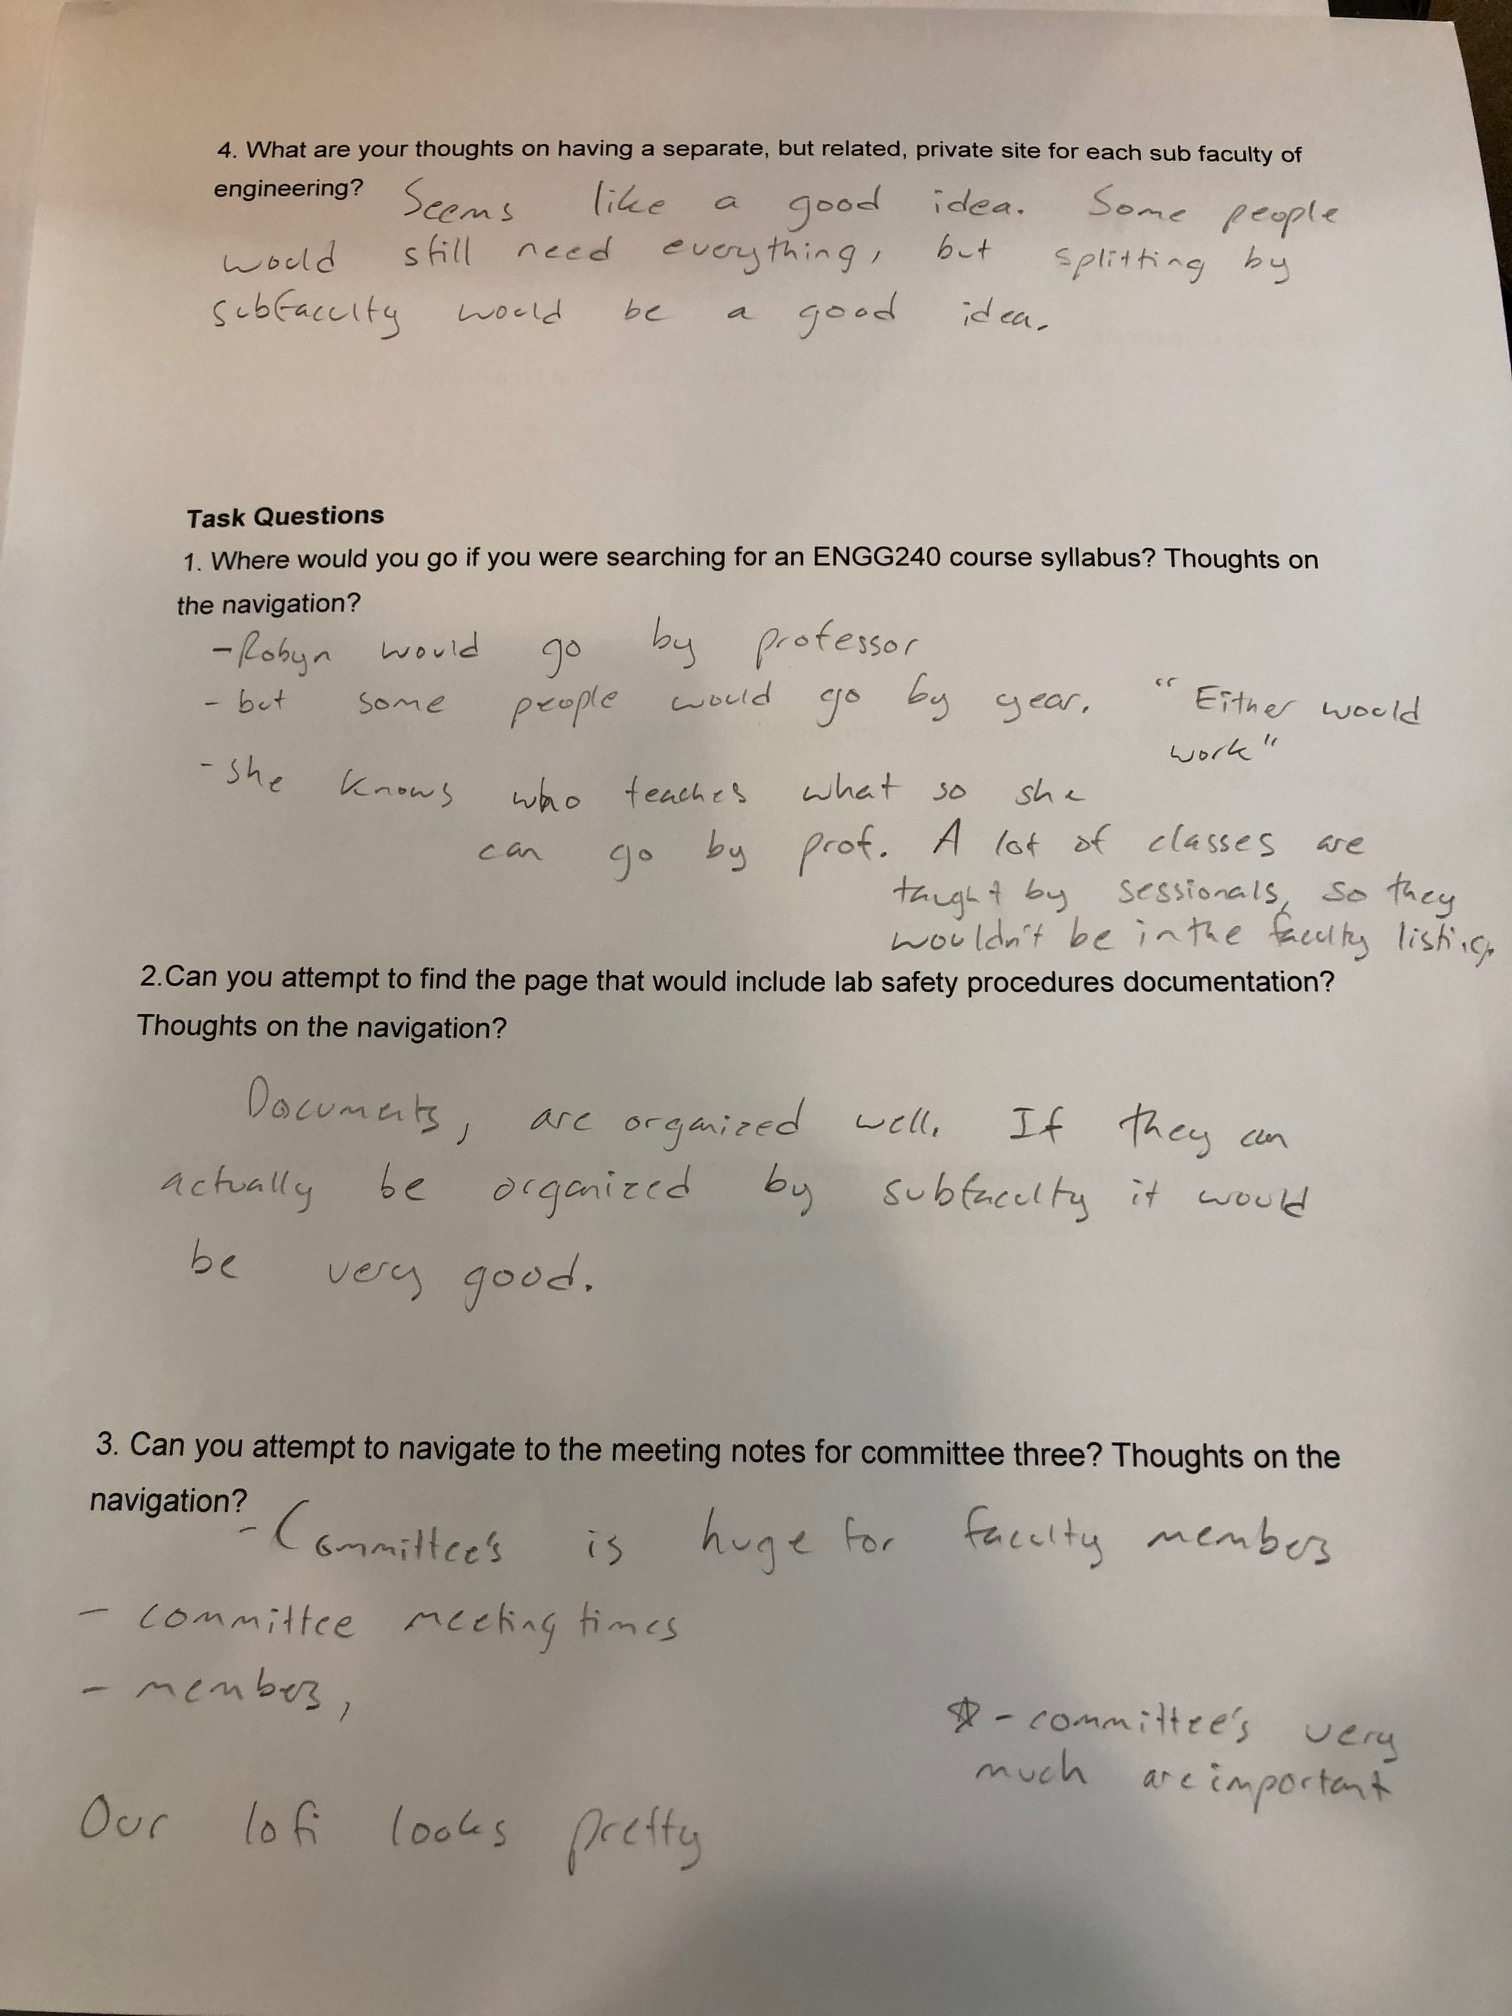 4. What are your thoughts on having a separate, but related, private site for each sub faculty of
engineering? Seems like a good idea. Some people
would still need everything, but splitting by
subfaculty would be a good idea.
Task Questions
1. Where would you go if you were searching for an ENGG240 course syllabus? Thoughts on
the navigation?
- Robyn would go by professor
- but some people would go by year. "Either would
work"
- she knows who teaches what so she
can go by prof. A lot of classes are
taught by sessionals, so they
wouldn't be in the faculty listing.
2.Can you attempt to find the page that would include lab safety procedures documentation?
Thoughts on the navigation?
Documents, are organized well. If they can
actually be organized by subfaculty it would
be very good.
3. Can you attempt to navigate to the meeting notes for committee three? Thoughts on the
navigation?
- Committee's is huge for faculty members
- committee meeting times
- members,
☆ - committee's very
much are important
Our lofi looks pretty